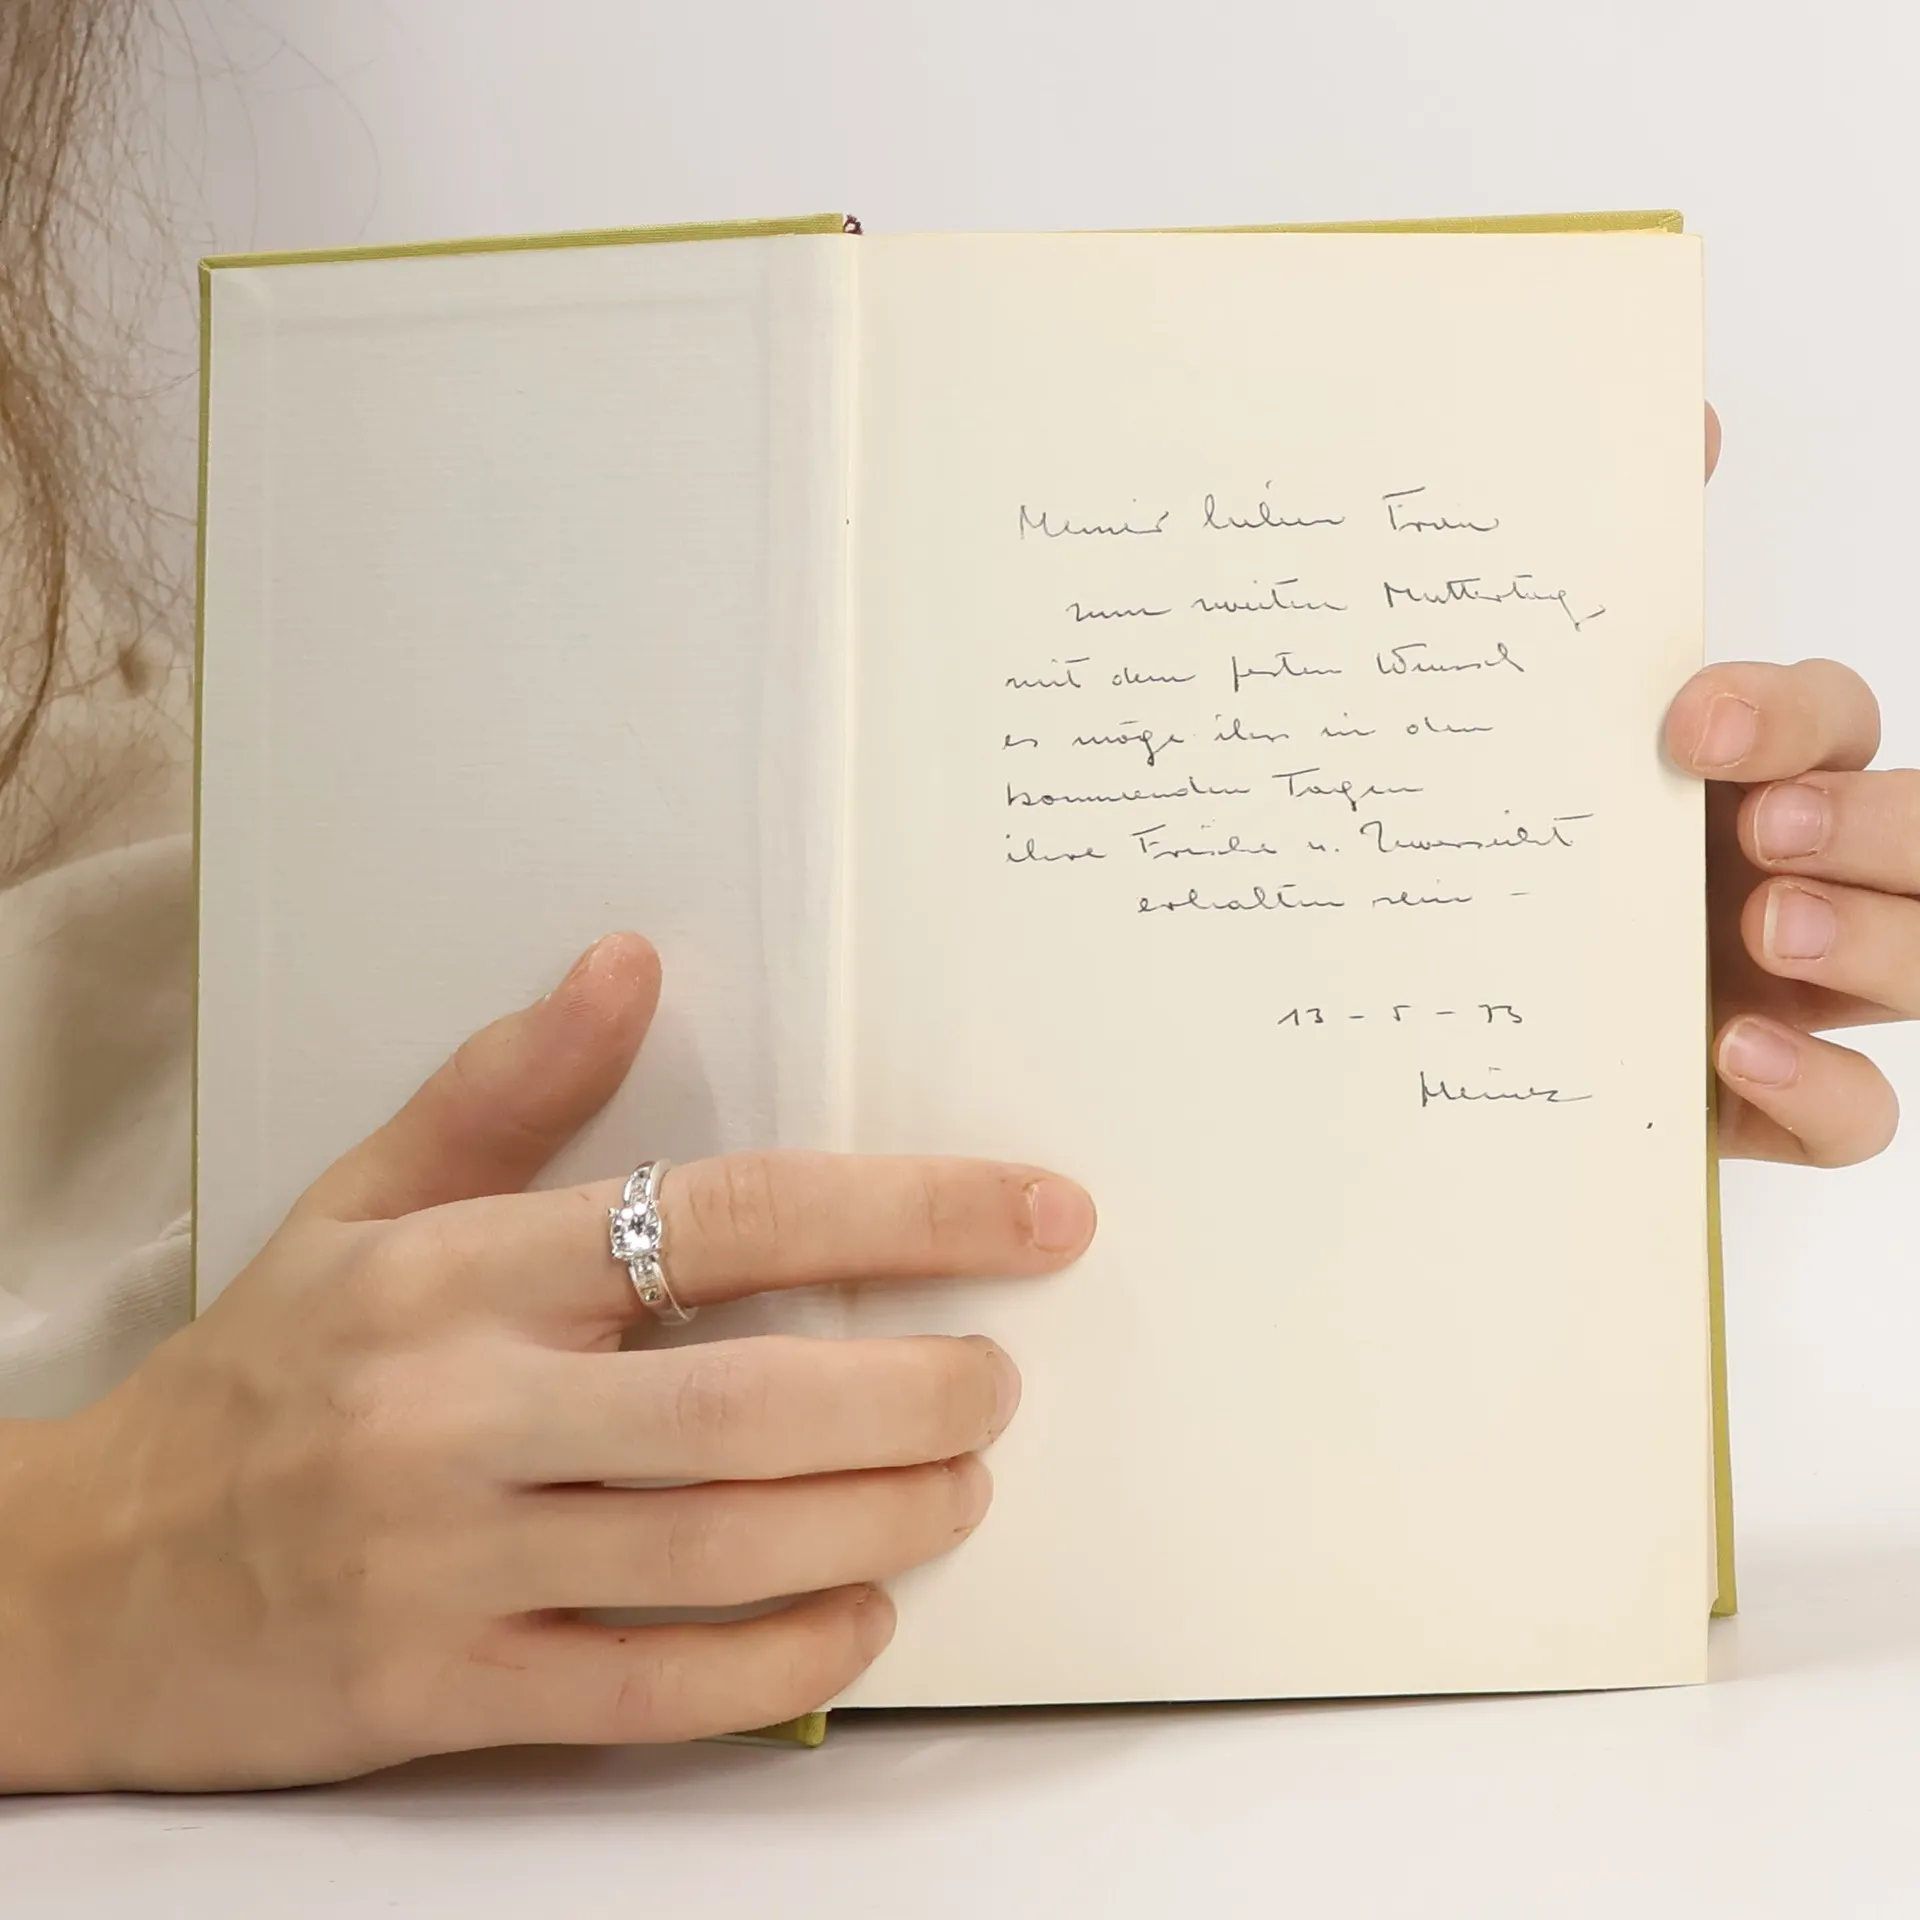 Meiner lieben Frau
zum zweiten Muttertag,
mit dem festen Wunsch
es möge ihr in den
kommenden Tagen
ihre Frische u. Zuversicht
erhalten sein –
13 – 5 – 73
Heinz